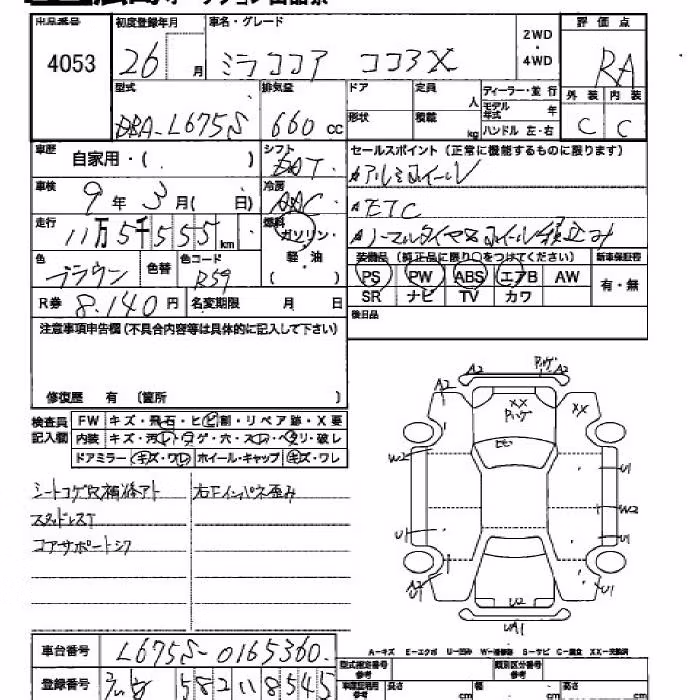 出品番号 初度登録年月 車名・グレード 2WD・4WD 評価点
4053 26 月 ミラココア ココアX RA
型式 排気量 ドア 定員 人 ディーラー・並行 外装 内装
DBA-L675S 660 cc 形状 積載 kg モデル年式 年 ハンドル 左・右 C C
車歴 自家用・( ) シフト セールスポイント(正常に機能するものに限ります)
車検 9年 3月( 日) 冷房 AAC アルミホイール
ETC
走行 11万5千555km 燃料 ガソリン・軽・油 ( ) ノーマルタイヤ&ホイール積込み
色 ブラウン 色替 色コード R59 装備品(純正品に限り○をつけてください) 新車保証書
PS PW ABS エアB AW 有・無
R券 8,140円 名変期限 月 日 SR ナビ TV カワ
注意事項申告欄(不具合内容等は具体的に記入して下さい) 後日品
修復歴 有 〔箇所 〕
検査員記入欄 FW キズ・飛石・ヒビ割・リペア跡・X要
内装 キズ・汚レ・コゲ・穴・スレ・ヘタリ・破レ
ドアミラー キズ・ワレ ホイール・キャップ キズ・ワレ
シートコゲ穴補修アト 右下インパネ歪み
スタッドレスT
コアサポートシワ
A2 A2
A2 XX XX
W2 U1
U1 W2
A2 U2 U1
UA1
A-キズ E-エクボ U-凹み W-補修跡 S-サビ C-腐食 XX-交換済
車台番号 L675S-0165360
型式指定番号 参考 類別区分番号 参考
登録番号 582 い 8545
車庫証明用 参考 長さ cm 幅 cm 高さ cm